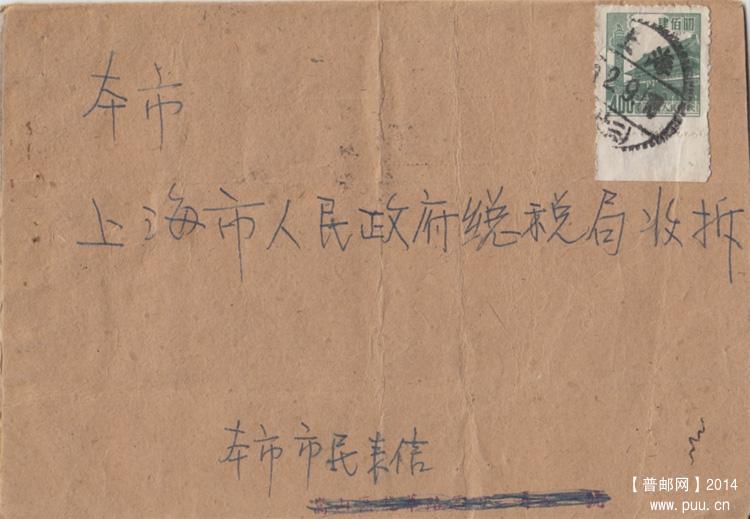 本市
肆佰圆
400
上海
上海市人民政府总税局收拆
本市市民来信
【普邮网】2014
www.puu.cn